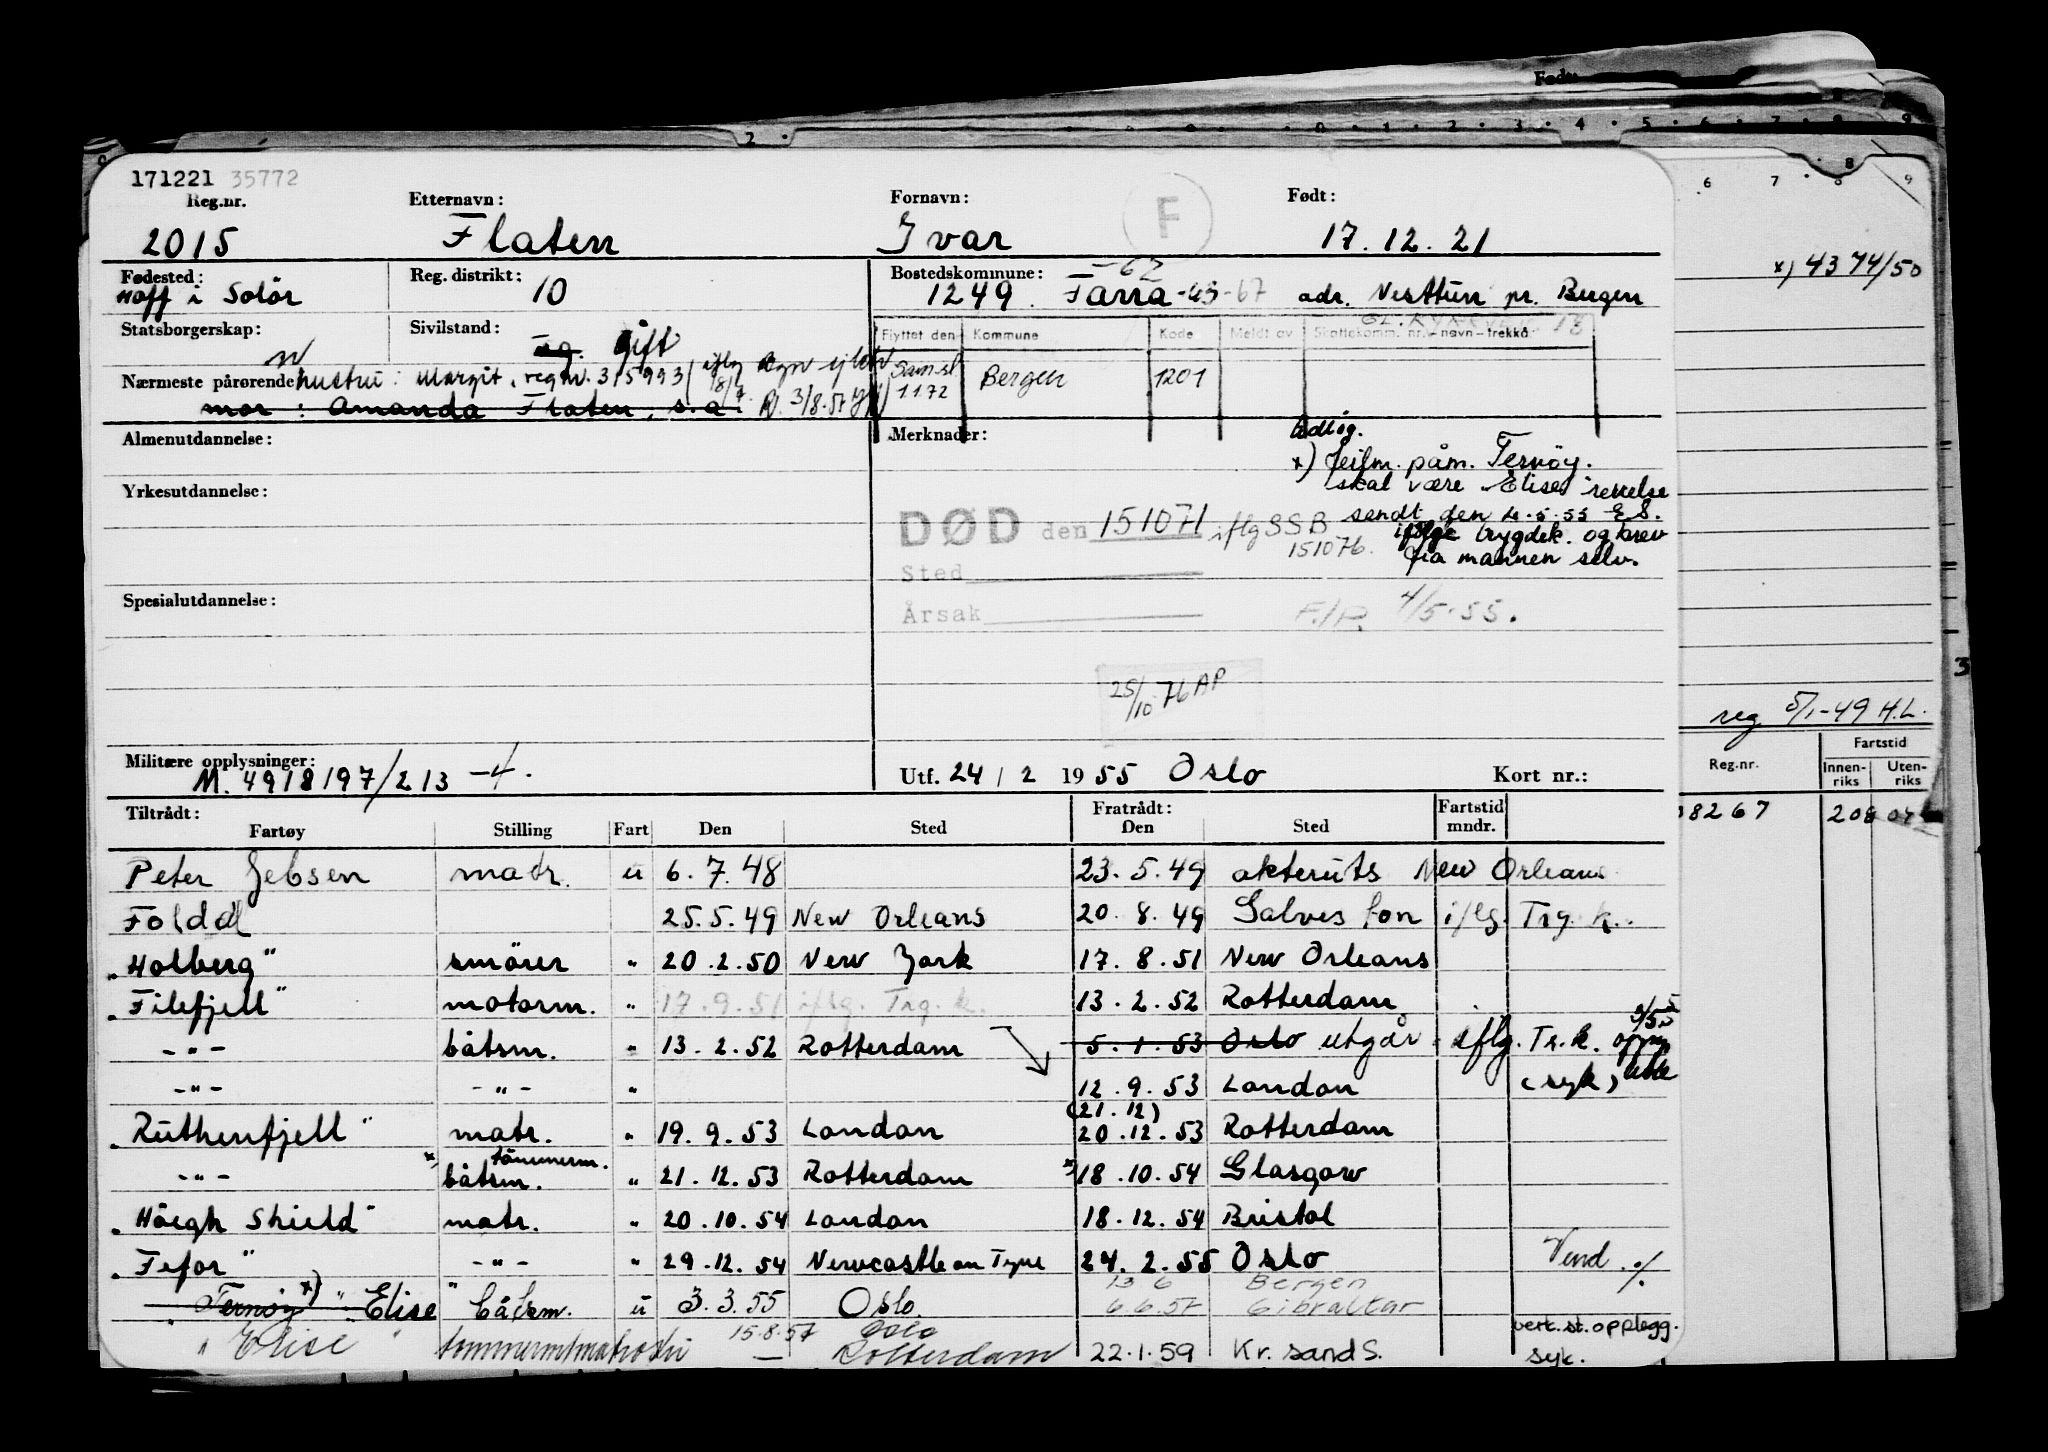 Født:
2 .
0 . 1 . 2 . 3 . 4 . 5 . 6 . 7 . 8 9
8
6 7 . 8 9
171221 35772
Reg.nr. Etternavn: Fornavn: F Født:
2015 Flaten Ivar 17.12.21
x) 4374/50
Fødested: Reg. distrikt: Bostedskommune: -62
Hoff i Solör 10 1249 Fana -43-67 adr. Nesttun pr. Bergen
Statsborgerskap: Sivilstand:
n ug. gift
Flyttet den Kommune Kode Meldt av Skattekomm. nr./navn-trekkå
Nærmeste pårørende hustru: Margit, reg nr. 315993
mor: Amanda Flaten, s.a. 3/8-57
Saml 1172 Bergen 1201
Almenutdannelse: Merknader:
x) Feilm. påm. Ternöy.
skal være "Elise" rettelse
Yrkesutdannelse:
sendt den 4.5.55 ES.
DØD den 151071 iflg SSB
151076.
ifölge trygdek. og brev
fra mannen selv.
Sted
Spesialutdannelse:
Årsak
F./P. 4/5-55.
25/10 76 AP
3
reg 5/1-49 H.L.
Militære opplysninger:
M. 4918197/213 -4.
Utf. 24 / 2 1955 Oslo Kort nr.:
Reg.nr. Fartstid
Innenriks Utenriks
08267 208
Tiltrådt: Fratrådt: Fartstid mndr.
Fartøy Stilling Fart Den Sted Den Sted
Peter Jebsen matr. u 6.7.48 23.5.49 akteruts New Orleans
Foldal 25.5.49 New Orleans 20.8.49 Galveston iflg. Trg. k.
"Holberg" smörer " 20.2.50 New York 17.8.51 New Orleans
"Filefjell" motorm. " 17.9.51 iflg. Trg. k. 13.2.52 Rotterdam
-"- båtsm. " 13.2.52 Rotterdam 5.1.53 Oslo utgår iflg. Tr.k.
-"- -"- " 12.9.53 London (syk)
(21.12)
"Ruthenfjell" matr. " 19.9.53 London 20.12.53 Rotterdam
-"- x) tömmerm. båtsm. " 21.12.53 Rotterdam x) 18.10.54 Glasgow
"Höegh Shield" matr. " 20.10.54 London 18.12.54 Bristol
"Fefor" -"- " 29.12.54 Newcastle on Tyne 24.2.55 Oslo Vend ./.
13 6 Bergen
"Ternöy" x) "Elise" båtsm. u 3.3.55 Oslo 6.6.57 Gibraltar
15.8.57 Oslo
verk.st.opplegg.
"Elise" — Rotterdam 22.1.59 Kr.sand S. syk.